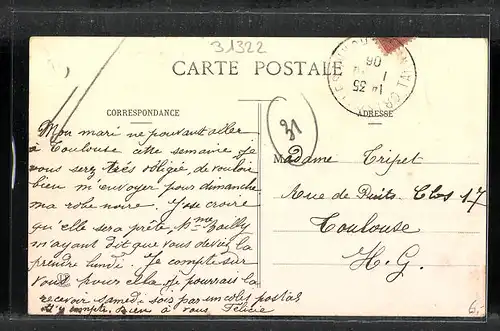 31322
CARTE POSTALE
CORRESPONDANCE
ADRESSE
Mon mari ne pouvant aller
à Toulouse cette semaine je
vous serz très obligée, de vouloir
bien m'envoyer pour dimanche
ma robe noire. J'ose croire
qu'elle sera prête, Mme Bailly
m'ayant dit que vous deviez la
prendre lundi. Je compte sur
Vous pour cella je pourrais la
recevoir samedi soir par un colis postal
J'y compte, Bien à vous Félicie
31
Madame Tripet
Rue de Puits-Clos 17
Toulouse
H. G.
14 35
1
06
6,-